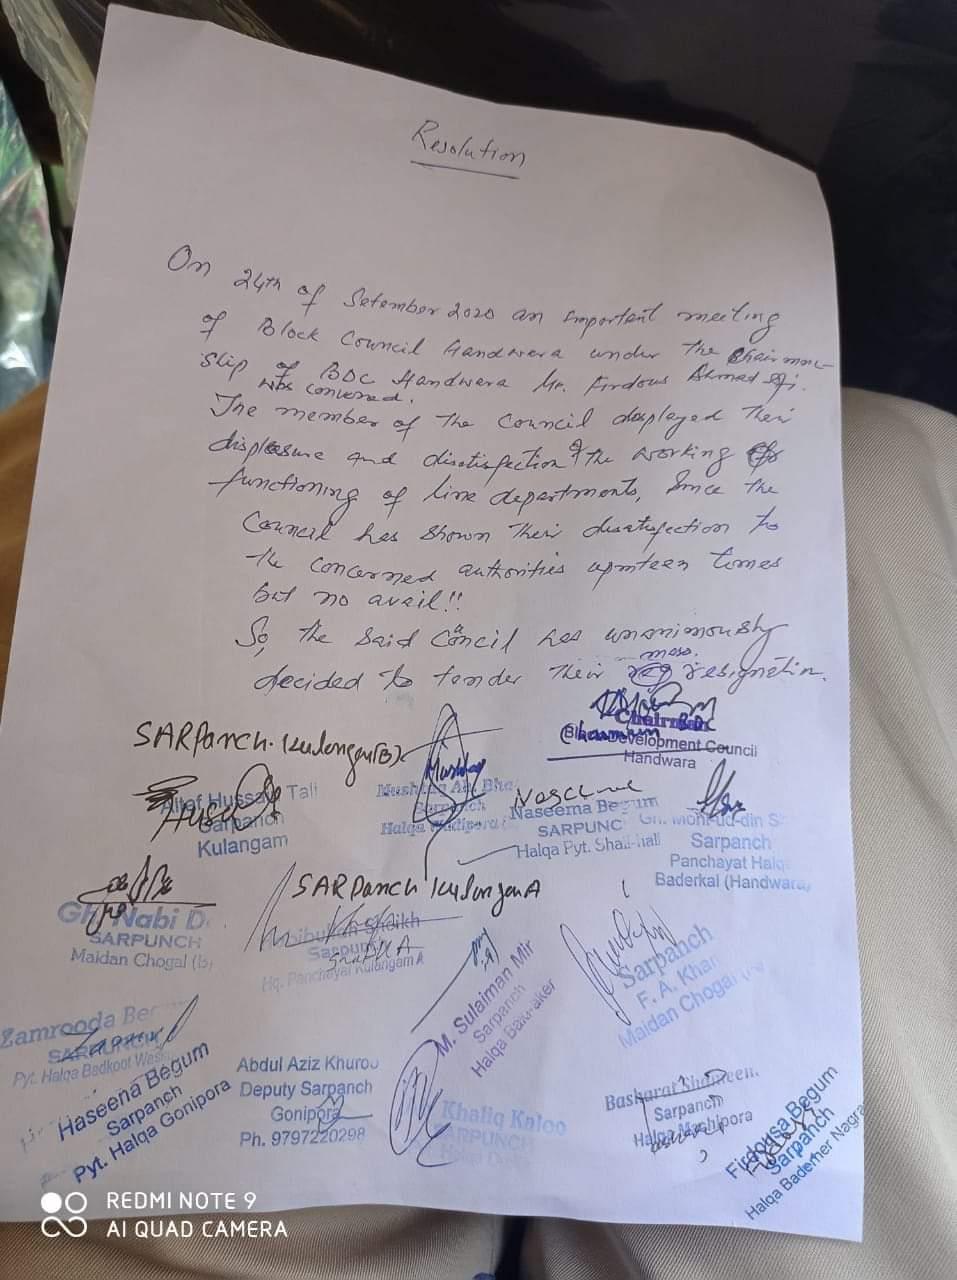 Resolution
On 24th of Setember 2020 an important meeting
of Block Council Handwara under the Chairman-
ship of BDC Handwara Mr. Firdous Ahmad
was convened.
The member of the Council desplayed their
displeasure and disatisfection of the working
functioning of line departments, Since the
Council has shown their disatisfection to
the concerned authorities umteen times
but no avail!!
So, the said Council has unanimously
mass.
decided to tender their resignation.
Chairman
Block Development Council
Handwara
SARPanch. Kulangam (B)
Altaf Hussain Tali
Sarpanch
Kulangam
Mushtaq Ah. Bha
Sarpanch
Halqa Wadipora
Naseema Begum
SARPUNC
Halqa Pyt. Shall-hall
Gh. Mohi-ud-din S
Sarpanch
Panchayat Halqa
Baderkal (Handwara)
Gh. Nabi D
SARPUNCH
Maidan Chogal (B)
SARPanch Kulangam A
Shaikh
Sarpunch
Hq. Panchayat Kulangam A
M. Sulaiman Mir
Sarpanch
Halqa
Sarpanch
F. A. Khan
Maidan Chogal
Zamrooda Be
SARPUNCH
Pyt. Halqa Badkoot
Haseena Begum
Sarpanch
Pyt. Halqa Gonipora
Abdul Aziz Khuroo
Deputy Sarpanch
Gonipora
Ph. 9797220298
Khaliq Kaloo
SARPUNCH
Basharat Shameen.
Sarpanch
Halqa Machipora
Firdousa Begum
Sarpanch
Halqa Baderher Nagra
REDMI NOTE 9
AI QUAD CAMERA